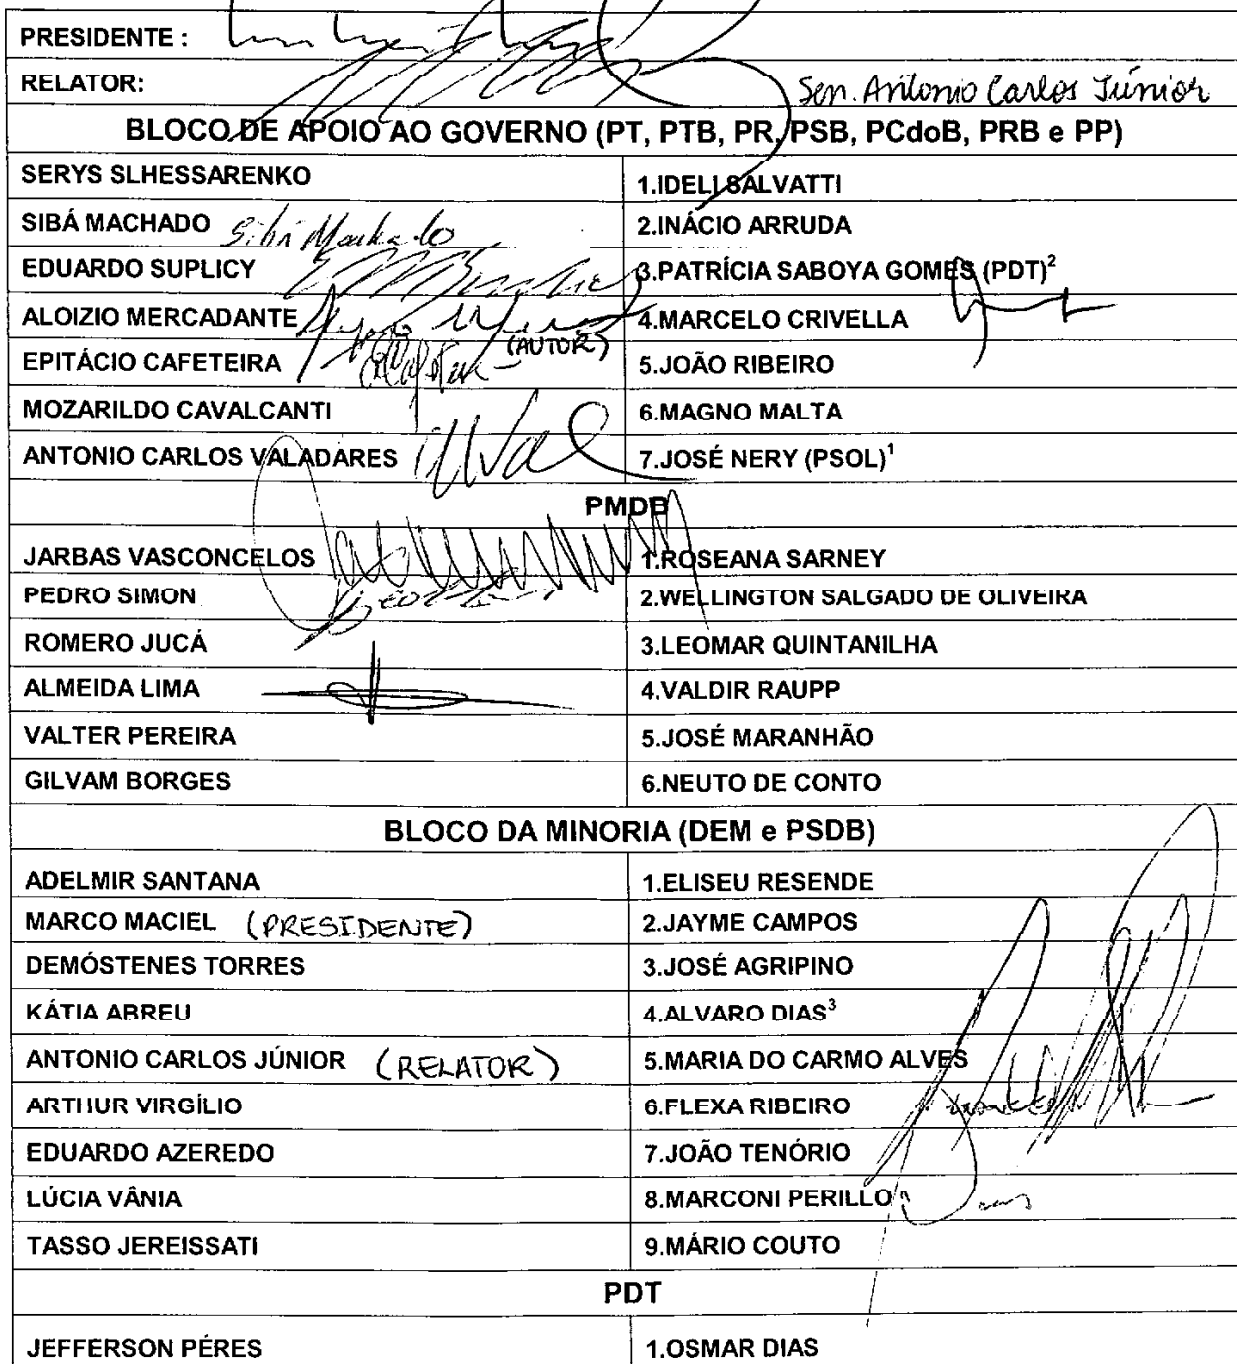 PRESIDENTE :
RELATOR: Sen. Antonio Carlos Júnior
BLOCO DE APOIO AO GOVERNO (PT, PTB, PR, PSB, PCdoB, PRB e PP)
SERYS SLHESSARENKO 1.IDELI SALVATTI
SIBÁ MACHADO Sibá Machado 2.INÁCIO ARRUDA
EDUARDO SUPLICY 3.PATRÍCIA SABOYA GOMES (PDT)²
ALOIZIO MERCADANTE (AUTOR) 4.MARCELO CRIVELLA
EPITÁCIO CAFETEIRA 5.JOÃO RIBEIRO
MOZARILDO CAVALCANTI 6.MAGNO MALTA
ANTONIO CARLOS VALADARES 7.JOSÉ NERY (PSOL)¹
PMDB
JARBAS VASCONCELOS 1.ROSEANA SARNEY
PEDRO SIMON 2.WELLINGTON SALGADO DE OLIVEIRA
ROMERO JUCÁ 3.LEOMAR QUINTANILHA
ALMEIDA LIMA 4.VALDIR RAUPP
VALTER PEREIRA 5.JOSÉ MARANHÃO
GILVAM BORGES 6.NEUTO DE CONTO
BLOCO DA MINORIA (DEM e PSDB)
ADELMIR SANTANA 1.ELISEU RESENDE
MARCO MACIEL (PRESIDENTE) 2.JAYME CAMPOS
DEMÓSTENES TORRES 3.JOSÉ AGRIPINO
KÁTIA ABREU 4.ALVARO DIAS³
ANTONIO CARLOS JÚNIOR (RELATOR) 5.MARIA DO CARMO ALVES
ARTHUR VIRGÍLIO 6.FLEXA RIBEIRO
EDUARDO AZEREDO 7.JOÃO TENÓRIO
LÚCIA VÂNIA 8.MARCONI PERILLO
TASSO JEREISSATI 9.MÁRIO COUTO
PDT
JEFFERSON PÉRES 1.OSMAR DIAS